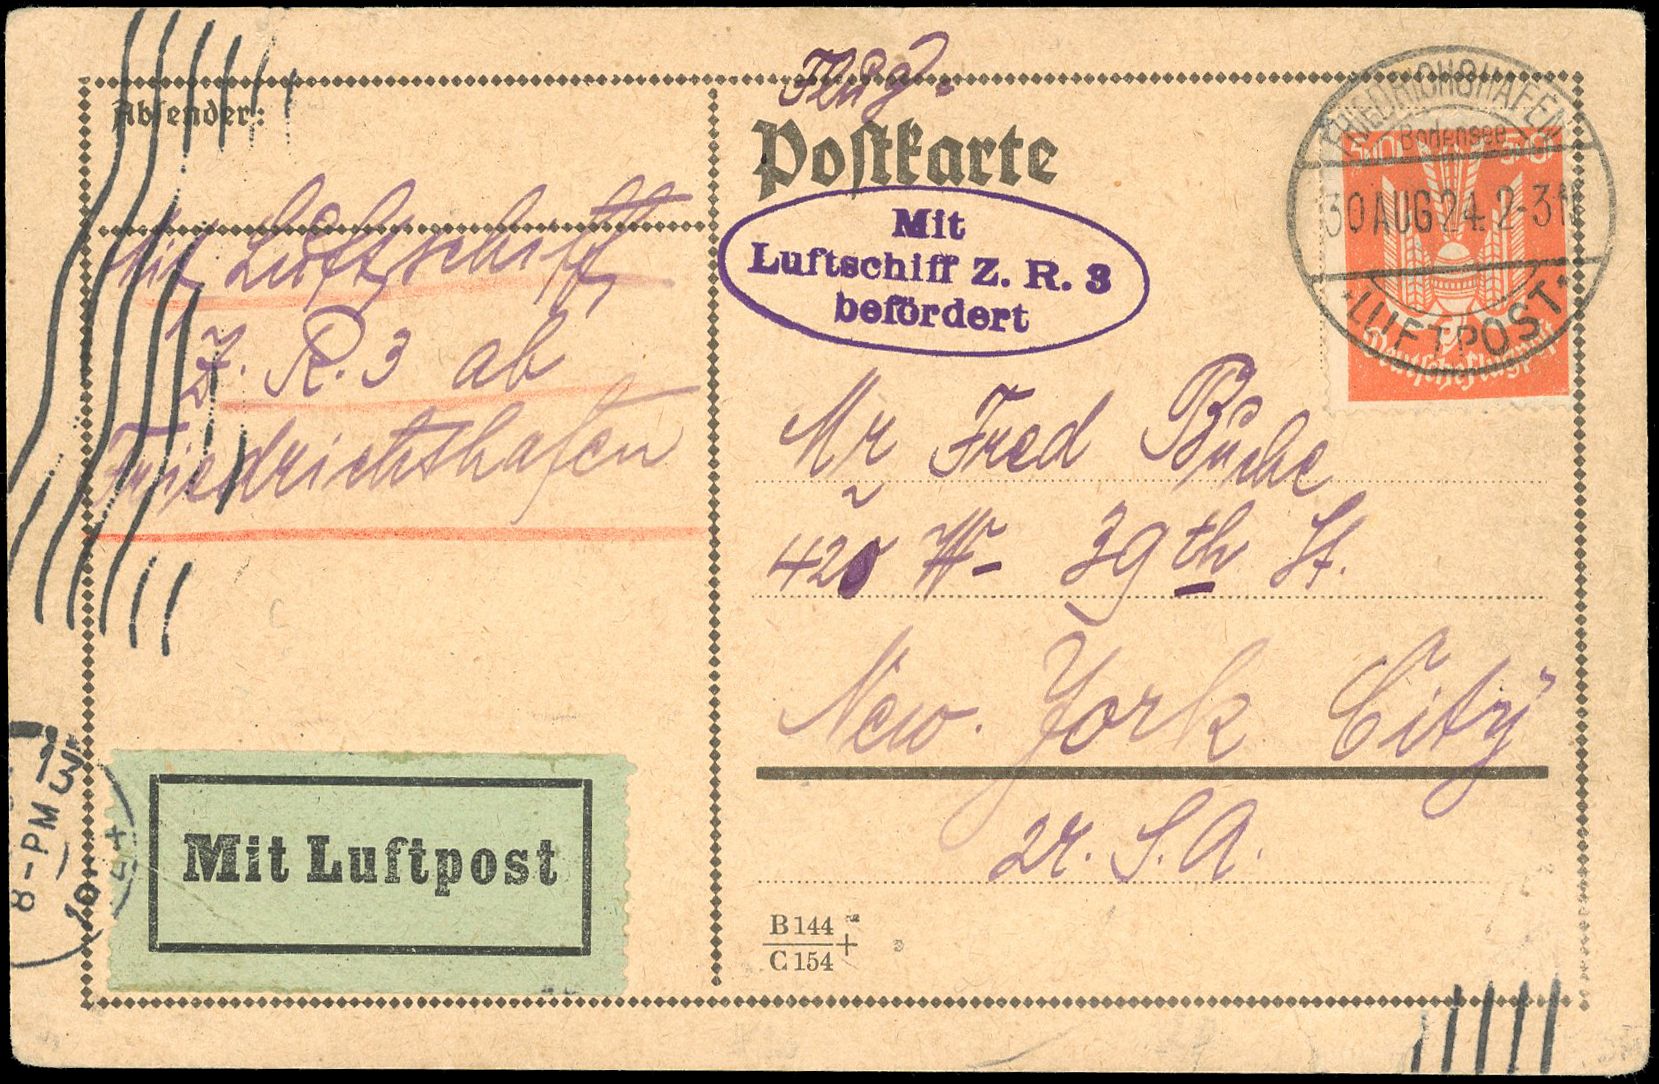 Absender:
Mit Luftschiff
Z. R. 3 ab
Friedrichshafen
Mit Luftpost
8-PM
Flug-
Postkarte
Mit
Luftschiff Z. R. 3
befördert
FRIEDRICHSHAFEN
Bodensee
30 AUG 24. 2-3N
* LUFTPOST *
500 500
Deutsche Flugpost
Mr Fred Buche
420 W- 39th St.
New. York City
U. S. A.
B 144
C 154
+